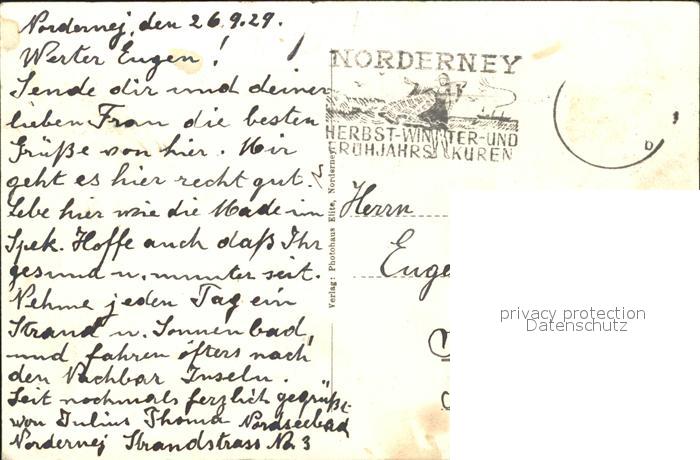 Nordernej, den 26.9.29.
Werter Eugen!
Sende dir und deiner
lieben Frau die besten
Grüße von hier. Mir
geht es hier recht gut.
Lebe hier wie die Made im
Spek. Hoffe auch daß Ihr
gesund u. munter seit.
Nehme jeden Tag ein
Strand u. Sonnenbad,
und fahren öfters nach
den Nachbar Inseln.
Seit nochmals herzlich gegrüßt
von Julius Thoma Nordseebad
Nordernej Strandstrass No. 3
NORDERNEY
HERBST-WINTER-UND
FRÜHJAHRS KUREN
Verlag: Photohaus Elite, Norderney
Herrn
Euge
privacy protection
Datenschutz